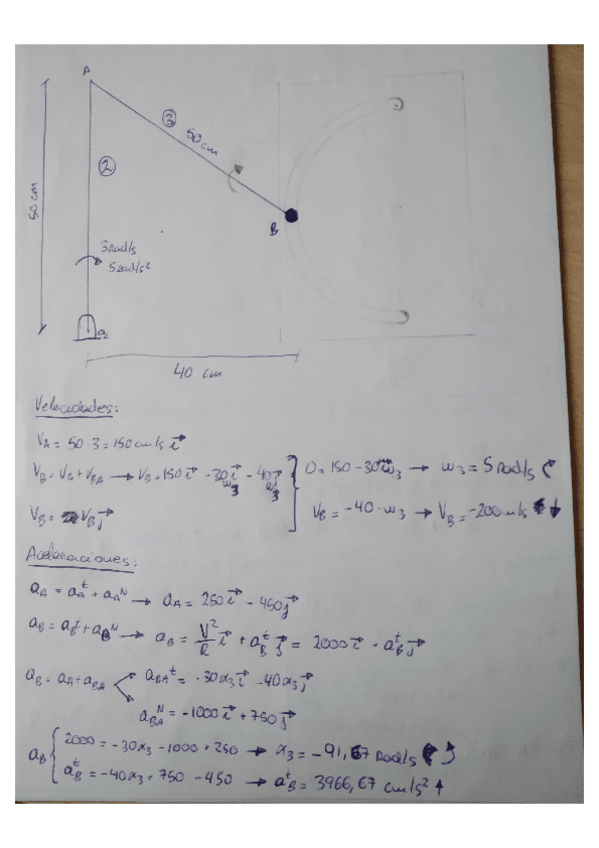 A
③
50 cm
②
50 cm
B
3 rad/s
5 rad/s²
O₂
40 cm
Velocidades:
V_A = 50·3 = 150 cm/s i→
V_B = V_A + V_BA → V_B = 150 i→ - 30 ω₃ i→ - 40 ω₃ j→
V_B = V_B j→
0 = 150 - 30 ω₃ → ω₃ = 5 rad/s ↻
V_B = -40·ω₃ → V_B = -200 cm/s ↓
Aceleraciones:
a_A = a_A^t + a_A^N → a_A = 250 i→ - 450 j→
a_B = a_B^t + a_B^N → a_B = V²/R i→ + a_B^t j→ = 2000 i→ + a_B^t j→
a_B = a_A + a_BA
a_BA^t = -30α₃ i→ - 40α₃ j→
a_BA^N = -1000 i→ + 750 j→
a_B { 2000 = -30α₃ - 1000 + 250 → α₃ = -91,67 rad/s ↺
a_B^t = -40α₃ + 750 - 450 → a_B^t = 3966,67 cm/s² ↑